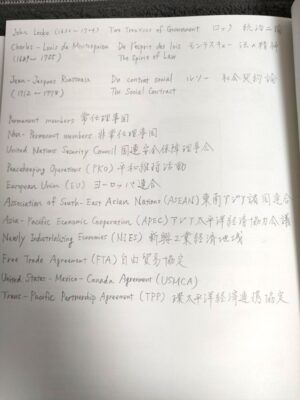 John Locke (1632 ~ 1704) Two Treatises of Government ロック 統治二論
Charles-Louis de Montesquieu De l'esprit des lois モンテスキュー 法の精神
(1689 ~ 1755) The Spirit of Law
Jean-Jacques Rousseau Du contrat social ルソー 社会契約論
(1712 ~ 1778) The Social Contract
Permanent members 常任理事国
Non-Permanent members 非常任理事国
United Nations Security Council 国連安全保障理事会
Peacekeeping Operations (PKO) 平和維持活動
European Union (EU) ヨーロッパ連合
Association of South-East Asian Nations (ASEAN) 東南アジア諸国連合
Asia-Pacific Economic Cooperation (APEC) アジア太平洋経済協力会議
Newly Industrializing Economies (NIES) 新興工業経済地域
Free Trade Agreement (FTA) 自由貿易協定
United States-Mexico-Canada Agreement (USMCA)
Trans-Pacific Partnership Agreement (TPP) 環太平洋経済連携協定